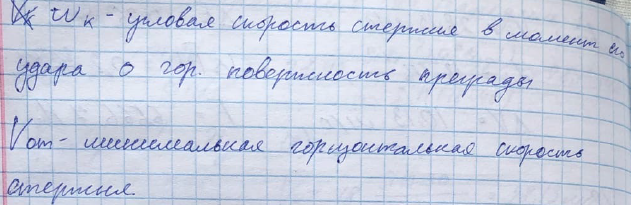 ωк - угловая скорость стержня в момент его
удара о гор. поверхность преграды
Vот - минимальная горизонтальная скорость
стержня.